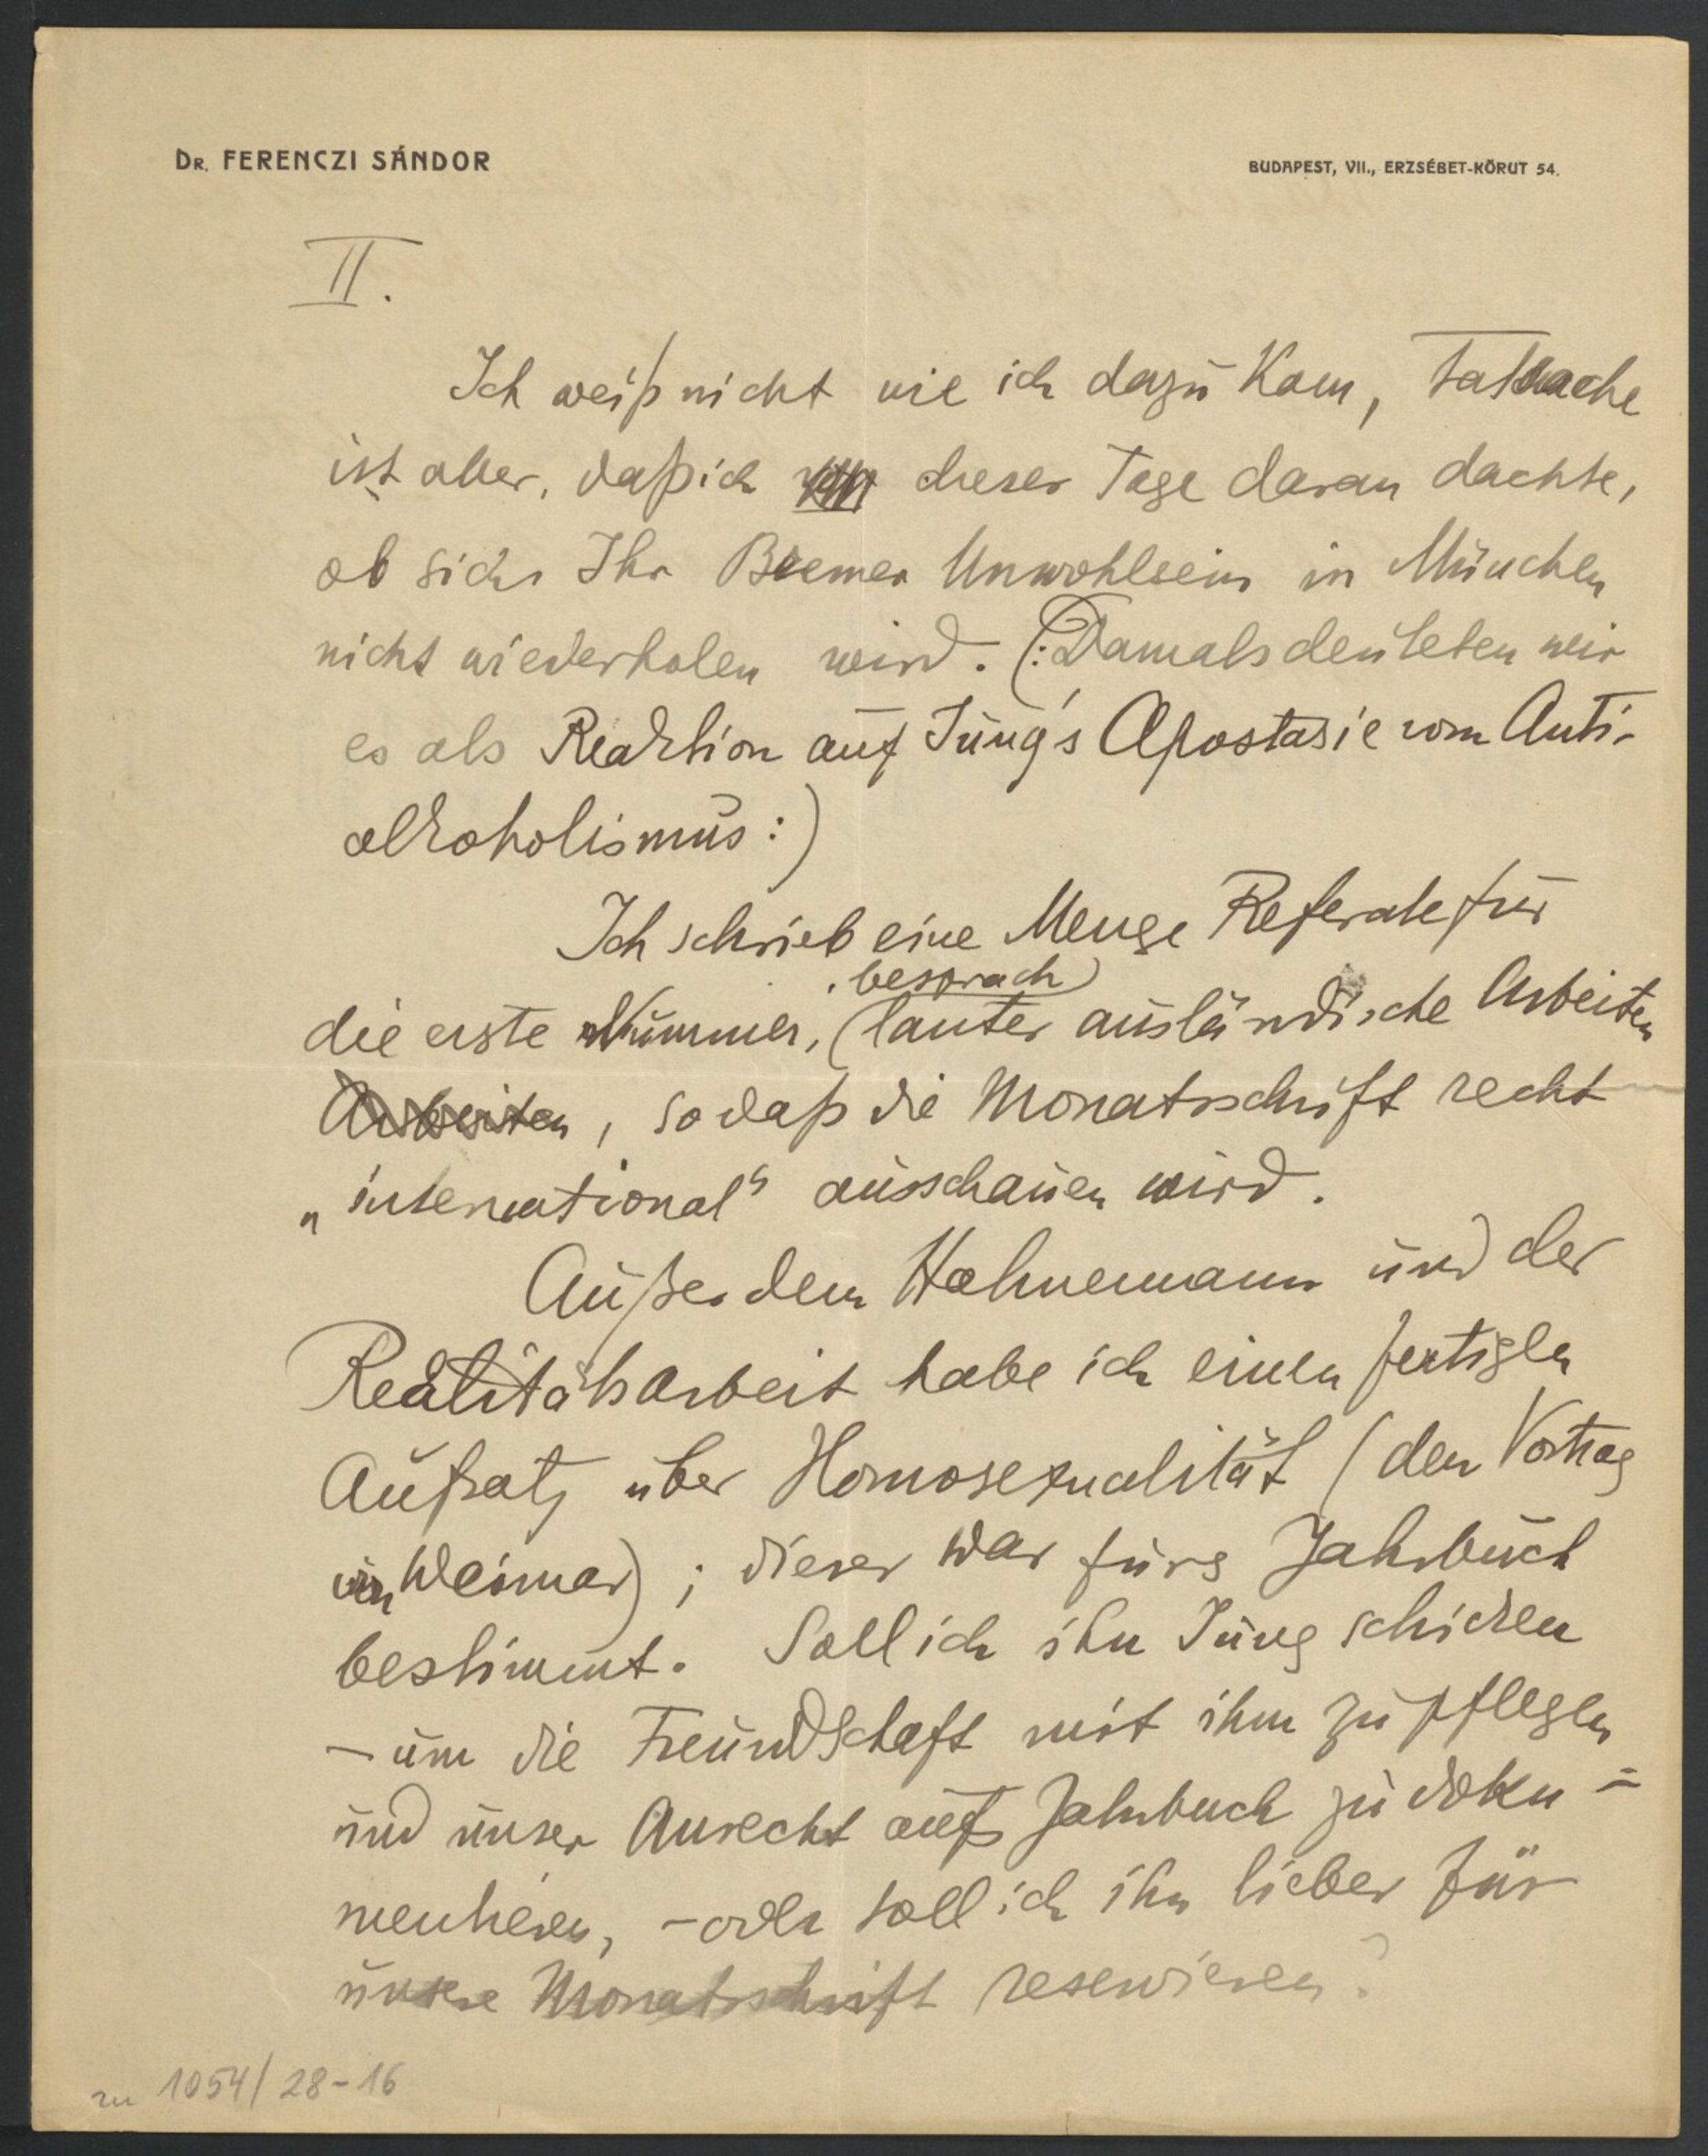 DR. FERENCZI SÁNDOR
BUDAPEST, VII., ERZSÉBET-KÖRUT 54.
II.
Ich weiß nicht wie ich dazu kam, Tatsache
ist aber, daß ich dieser Tage daran dachte,
ob sich Ihr Bremer Unwohlsein in München
nicht wiederholen wird. (: Damals deuteten wir
es als Reaktion auf Jung's Apostasie vom Anti-
alkoholismus :)
Ich schrieb eine Menge Referate für
besprach
die erste Nummer, (lauter ausländische Arbeiten
Arbeiten, sodaß die Monatsschrift recht
„international“ ausschauen wird.
Außer dem Hahnemann und der
Realitätsarbeit habe ich einen fertigen
Aufsatz über Homosexualität (den Vortrag
in Weimar); dieser war fürs Jahrbuch
bestimmt. Soll ich ihn Jung schicken
– um die Freundschaft mit ihm zu pflegen
und unser Anrecht aufs Jahrbuch zu doku=
mentieren, – oder soll ich ihn lieber für
unsere Monatsschrift reservieren?
zu 1054/28-16